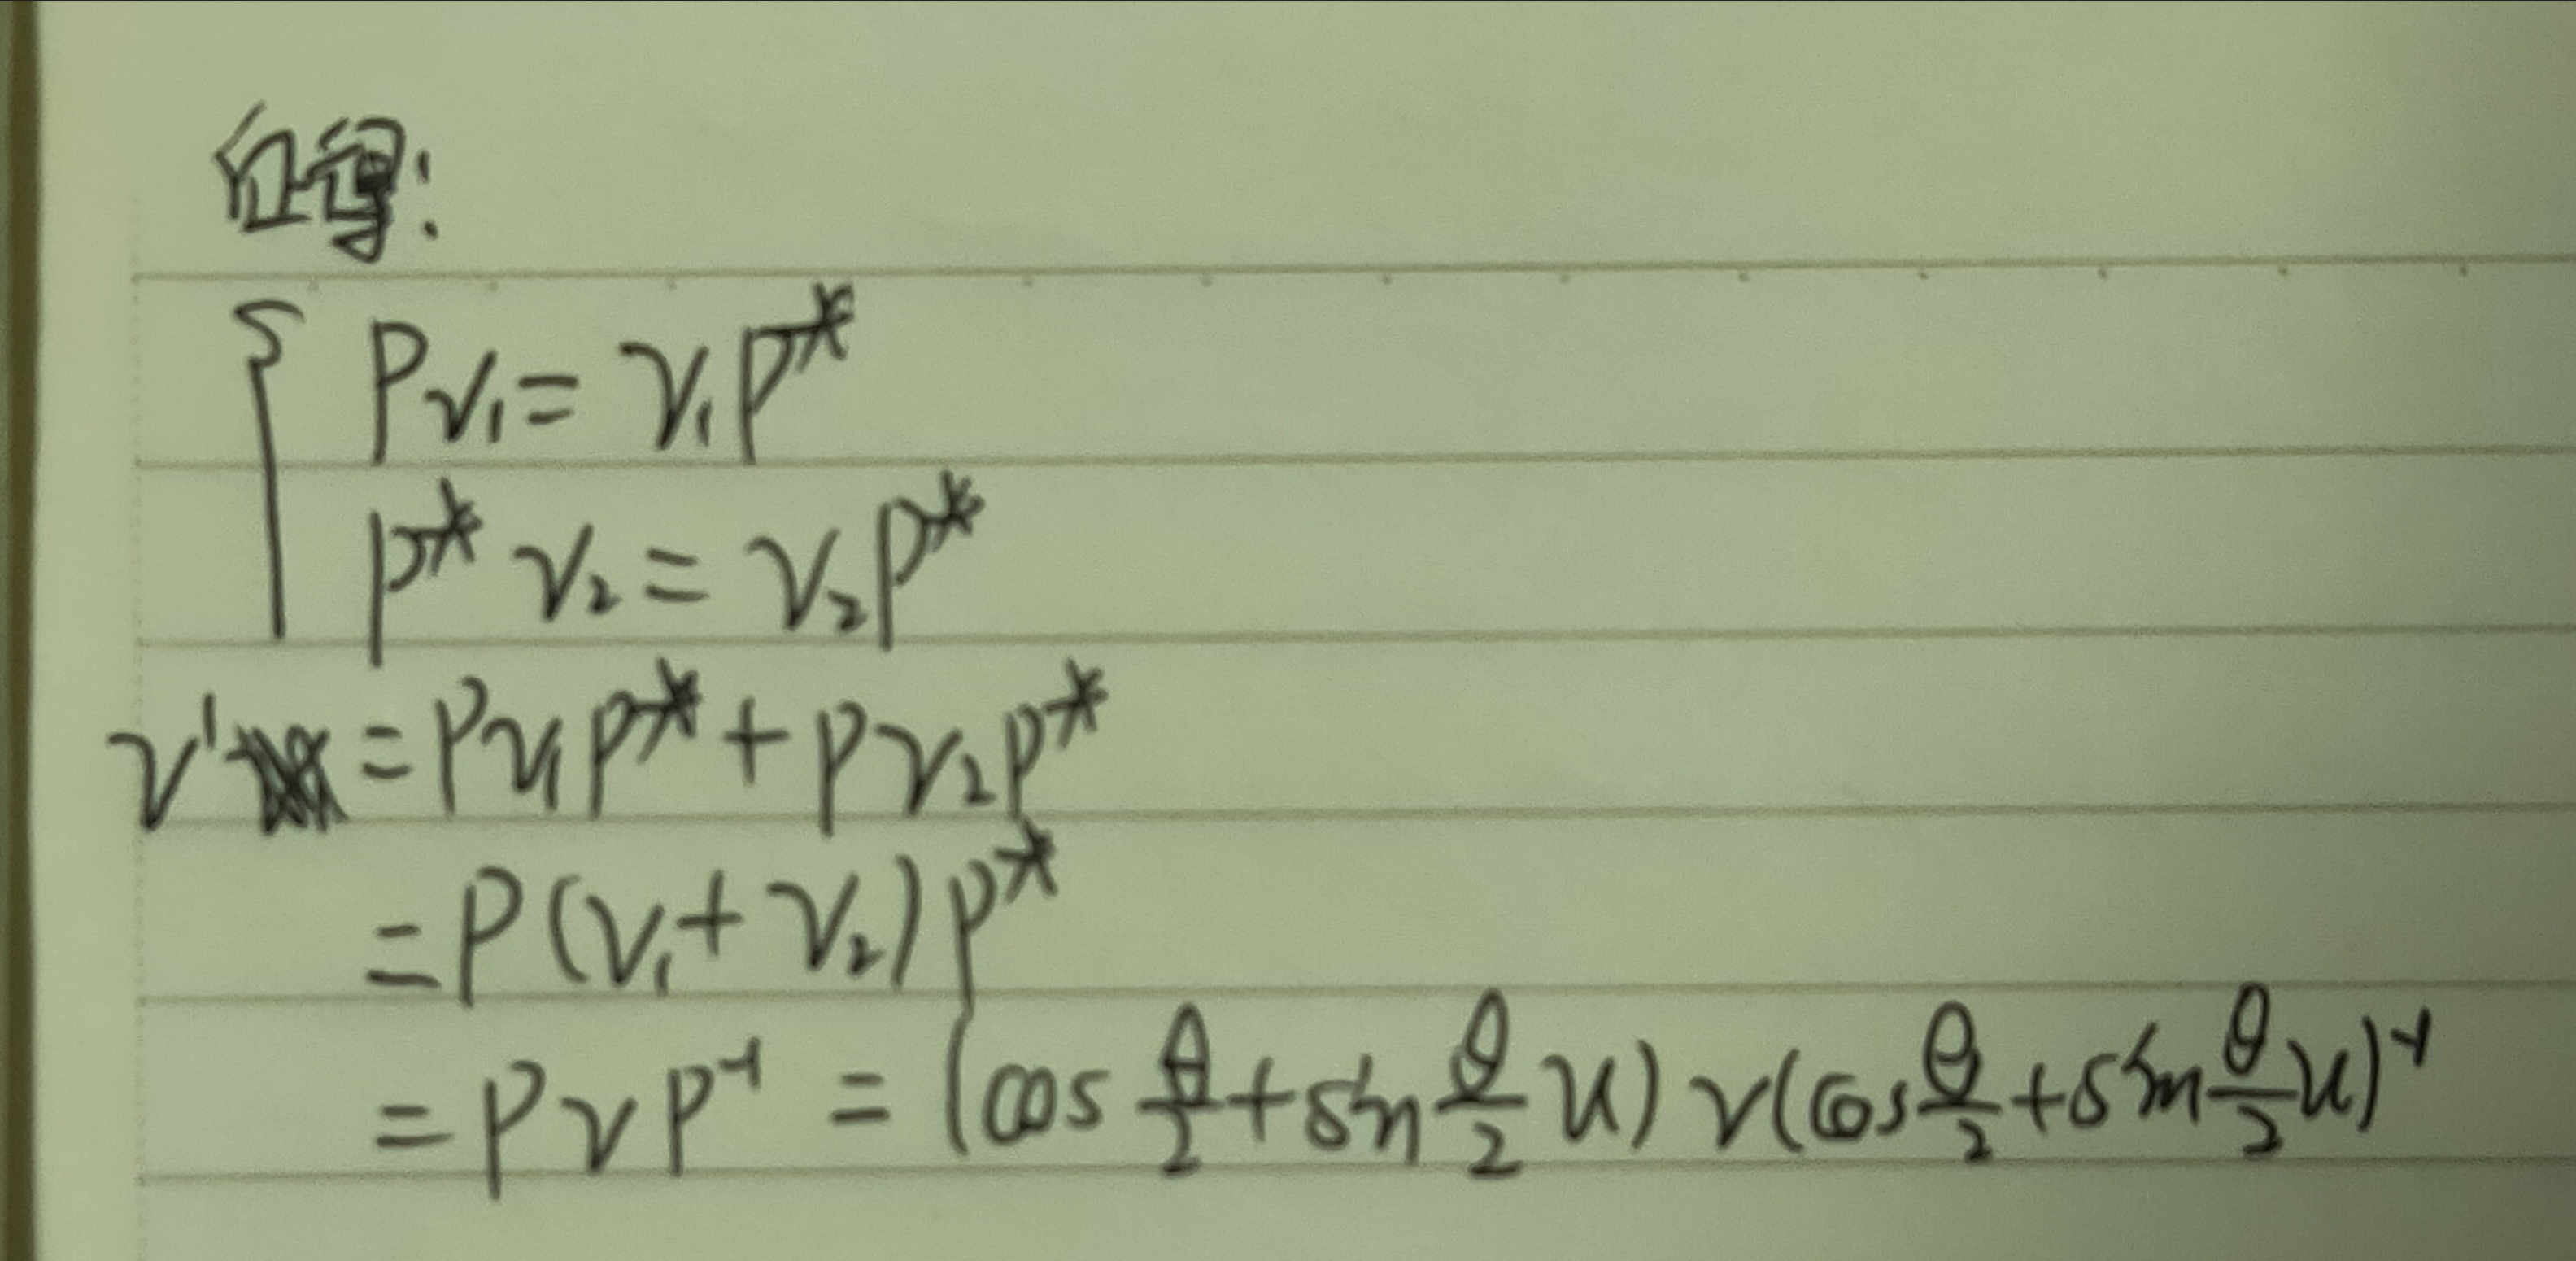 { Pv₁ = v₁P*
P* v₂ = v₂P*
v' = Pv₁P* + Pv₂P*
= P(v₁ + v₂)P*
= PvP⁻¹ = (cos θ/2 + sin θ/2 u) v (cos θ/2 + sin θ/2 u)⁻¹